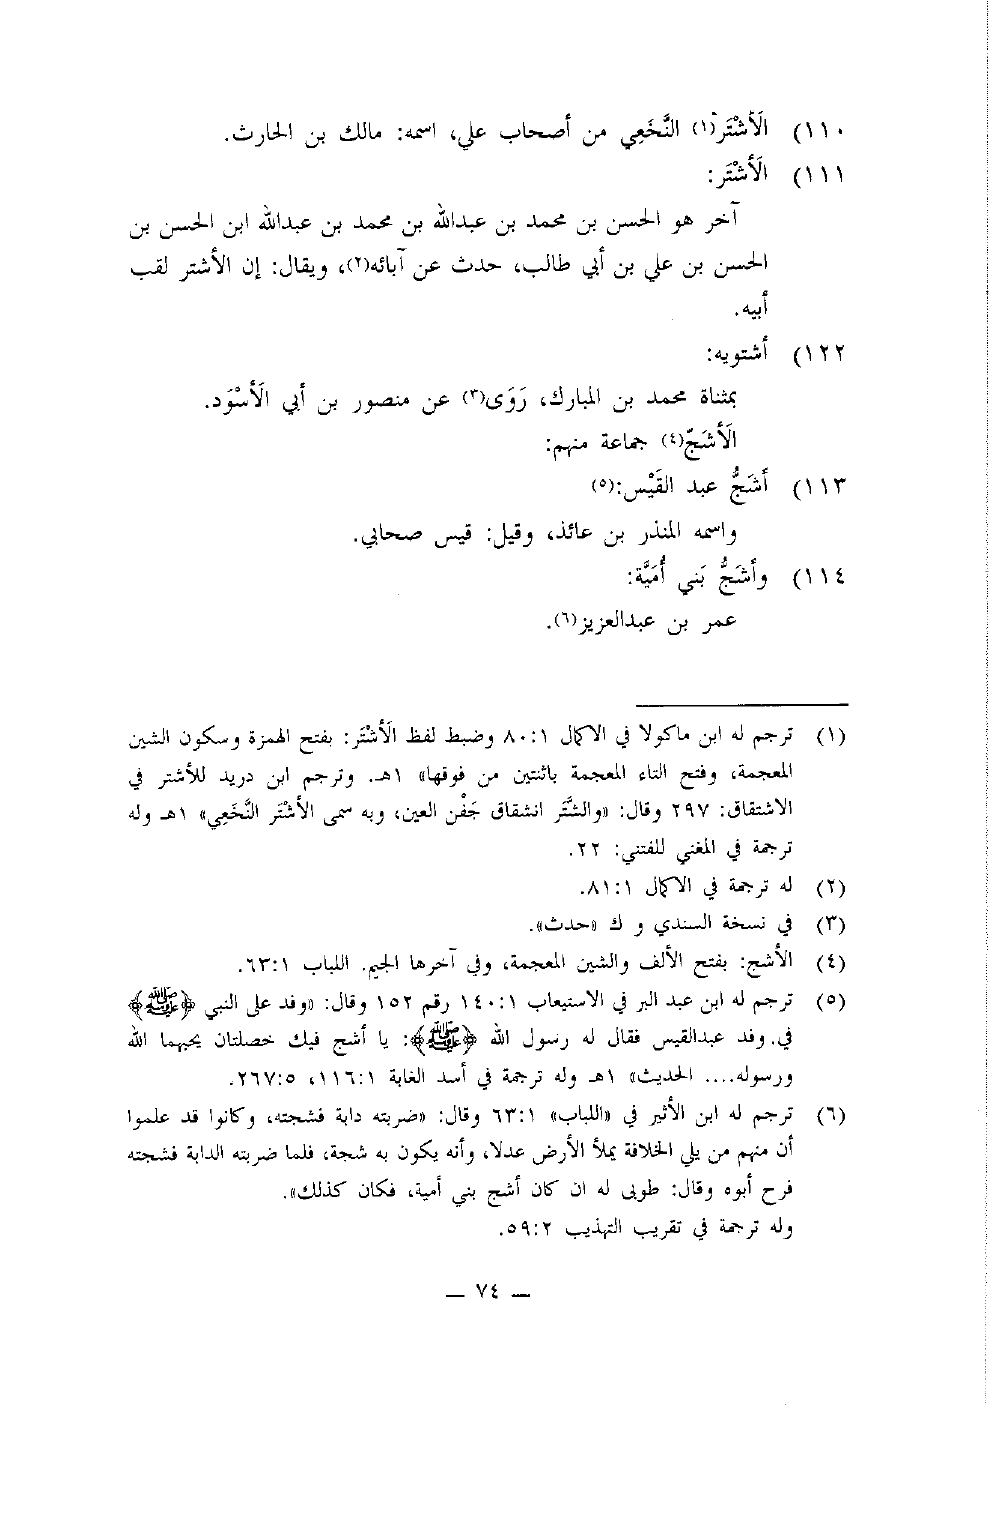 ١١٠) الَأشْتَر(١) النَّخَعِي من أصحاب علي، اسمه: مالك بن الحارث.
١١١) الَأشْتَر:
آخر هو الحسن بن محمد بن عبدالله بن محمد بن عبدالله ابن الحسن بن
الحسن بن علي بن أبي طالب، حدث عن آبائه(٢)، ويقال: إن الأشتر لقب
أبيه.
١٢٢) أشتويه:
بمثناة محمد بن المبارك، رَوَى(٣) عن منصور بن أبي الَأسْوَد.
الَأشَجّ(٤) جماعة منهم:
١١٣) أَشَجُّ عبد القَيْس:(٥)
واسمه المنذر بن عائذ، وقيل: قيس صحابي.
١١٤) وأشَجُّ بَني أُمَيَّة:
عمر بن عبدالعزيز(٦).
(١) ترجم له ابن ماكولا في الاكمال ٨٠:١ وضبط لفظ الَأشْتَر: بفتح الهمزة وسكون الشين
المعجمة، وفتح التاء المعجمة باثنتين من فوقها» ١هـ. وترجم ابن دريد للأشتر في
الاشتقاق: ٢٩٧ وقال: «والشَّتَر انشقاق جَفْن العين، وبه سمى الأشْتَر النَّخَعِي» ١هـ وله
ترجمة في المغني للفتني: ٢٢.
(٢) له ترجمة في الاكمال ٨١:١.
(٣) في نسخة السندي و ك «حدث».
(٤) الأشج: بفتح الألف والشين المعجمة، وفي آخرها الجيم. اللباب ٦٣:١.
(٥) ترجم له ابن عبد البر في الاستيعاب ١٤٠:١ رقم ١٥٢ وقال: «وفد على النبي ﴿ﷺ﴾
في.وفد عبدالقيس فقال له رسول الله ﴿ﷺ﴾: يا أشج فيك خصلتان يحبهما الله
ورسوله.... الحديث» ١هـ وله ترجمة في أسد الغابة ١١٦:١، ٢٦٧:٥.
(٦) ترجم له ابن الأثير في «اللباب» ٦٣:١ وقال: «ضربته دابة فشجته، وكانوا قد علموا
أن منهم من يلي الخلافة يملأ الأرض عدلا، وأنه يكون به شجة، فلما ضربته الدابة فشجته
فرح أبوه وقال: طوبى له ان كان أشج بني أمية، فكان كذلك».
وله ترجمة في تقريب التهذيب ٥٩:٢.
— ٧٤ —